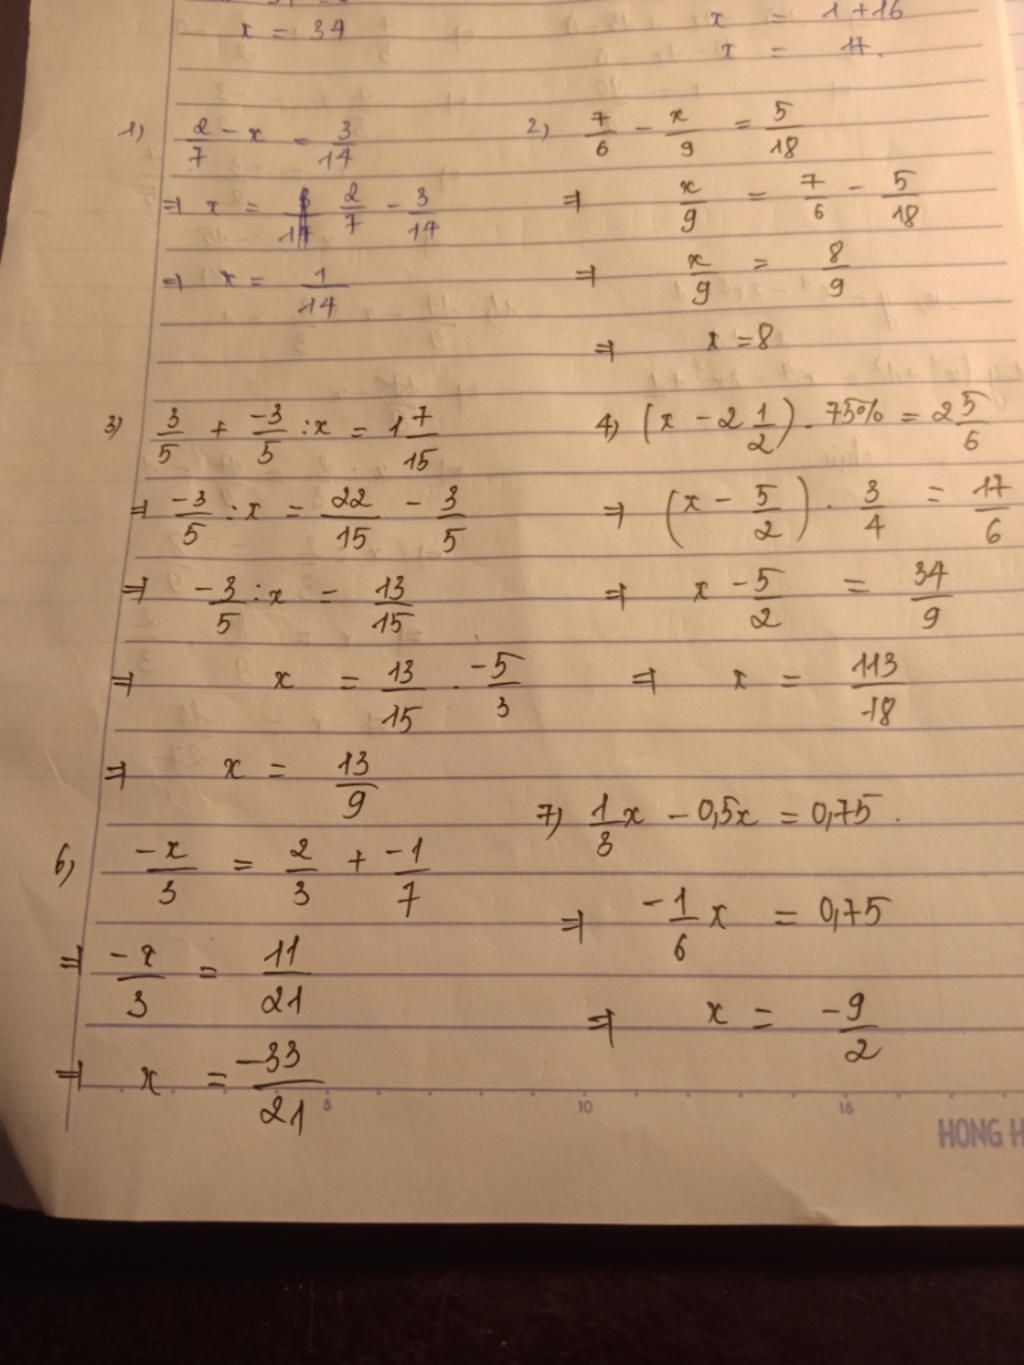 x = 34
x = 1 + 16
x = 17.
1) 2/7 - x = 3/14
⇒ x = 2/7 - 3/14
⇒ x = 1/14
2) 7/6 - x/9 = 5/18
⇒ x/9 = 7/6 - 5/18
⇒ x/9 = 8/9
⇒ x = 8
3) 3/5 + -3/5 : x = 1 7/15
⇒ -3/5 : x = 22/15 - 3/5
⇒ -3/5 : x = 13/15
⇒ x = 13/15 . -5/3
⇒ x = 13/9
4) (x - 2 1/2) . 75% = 2 5/6
⇒ (x - 5/2) . 3/4 = 17/6
⇒ x - 5/2 = 34/9
⇒ x = 113/18
6) -x/3 = 2/3 + -1/7
⇒ -x/3 = 11/21
⇒ x = -33/21
7) 1/3 x - 0,5x = 0,75.
⇒ -1/6 x = 0,75
⇒ x = -9/2
5 10 15
HONG H